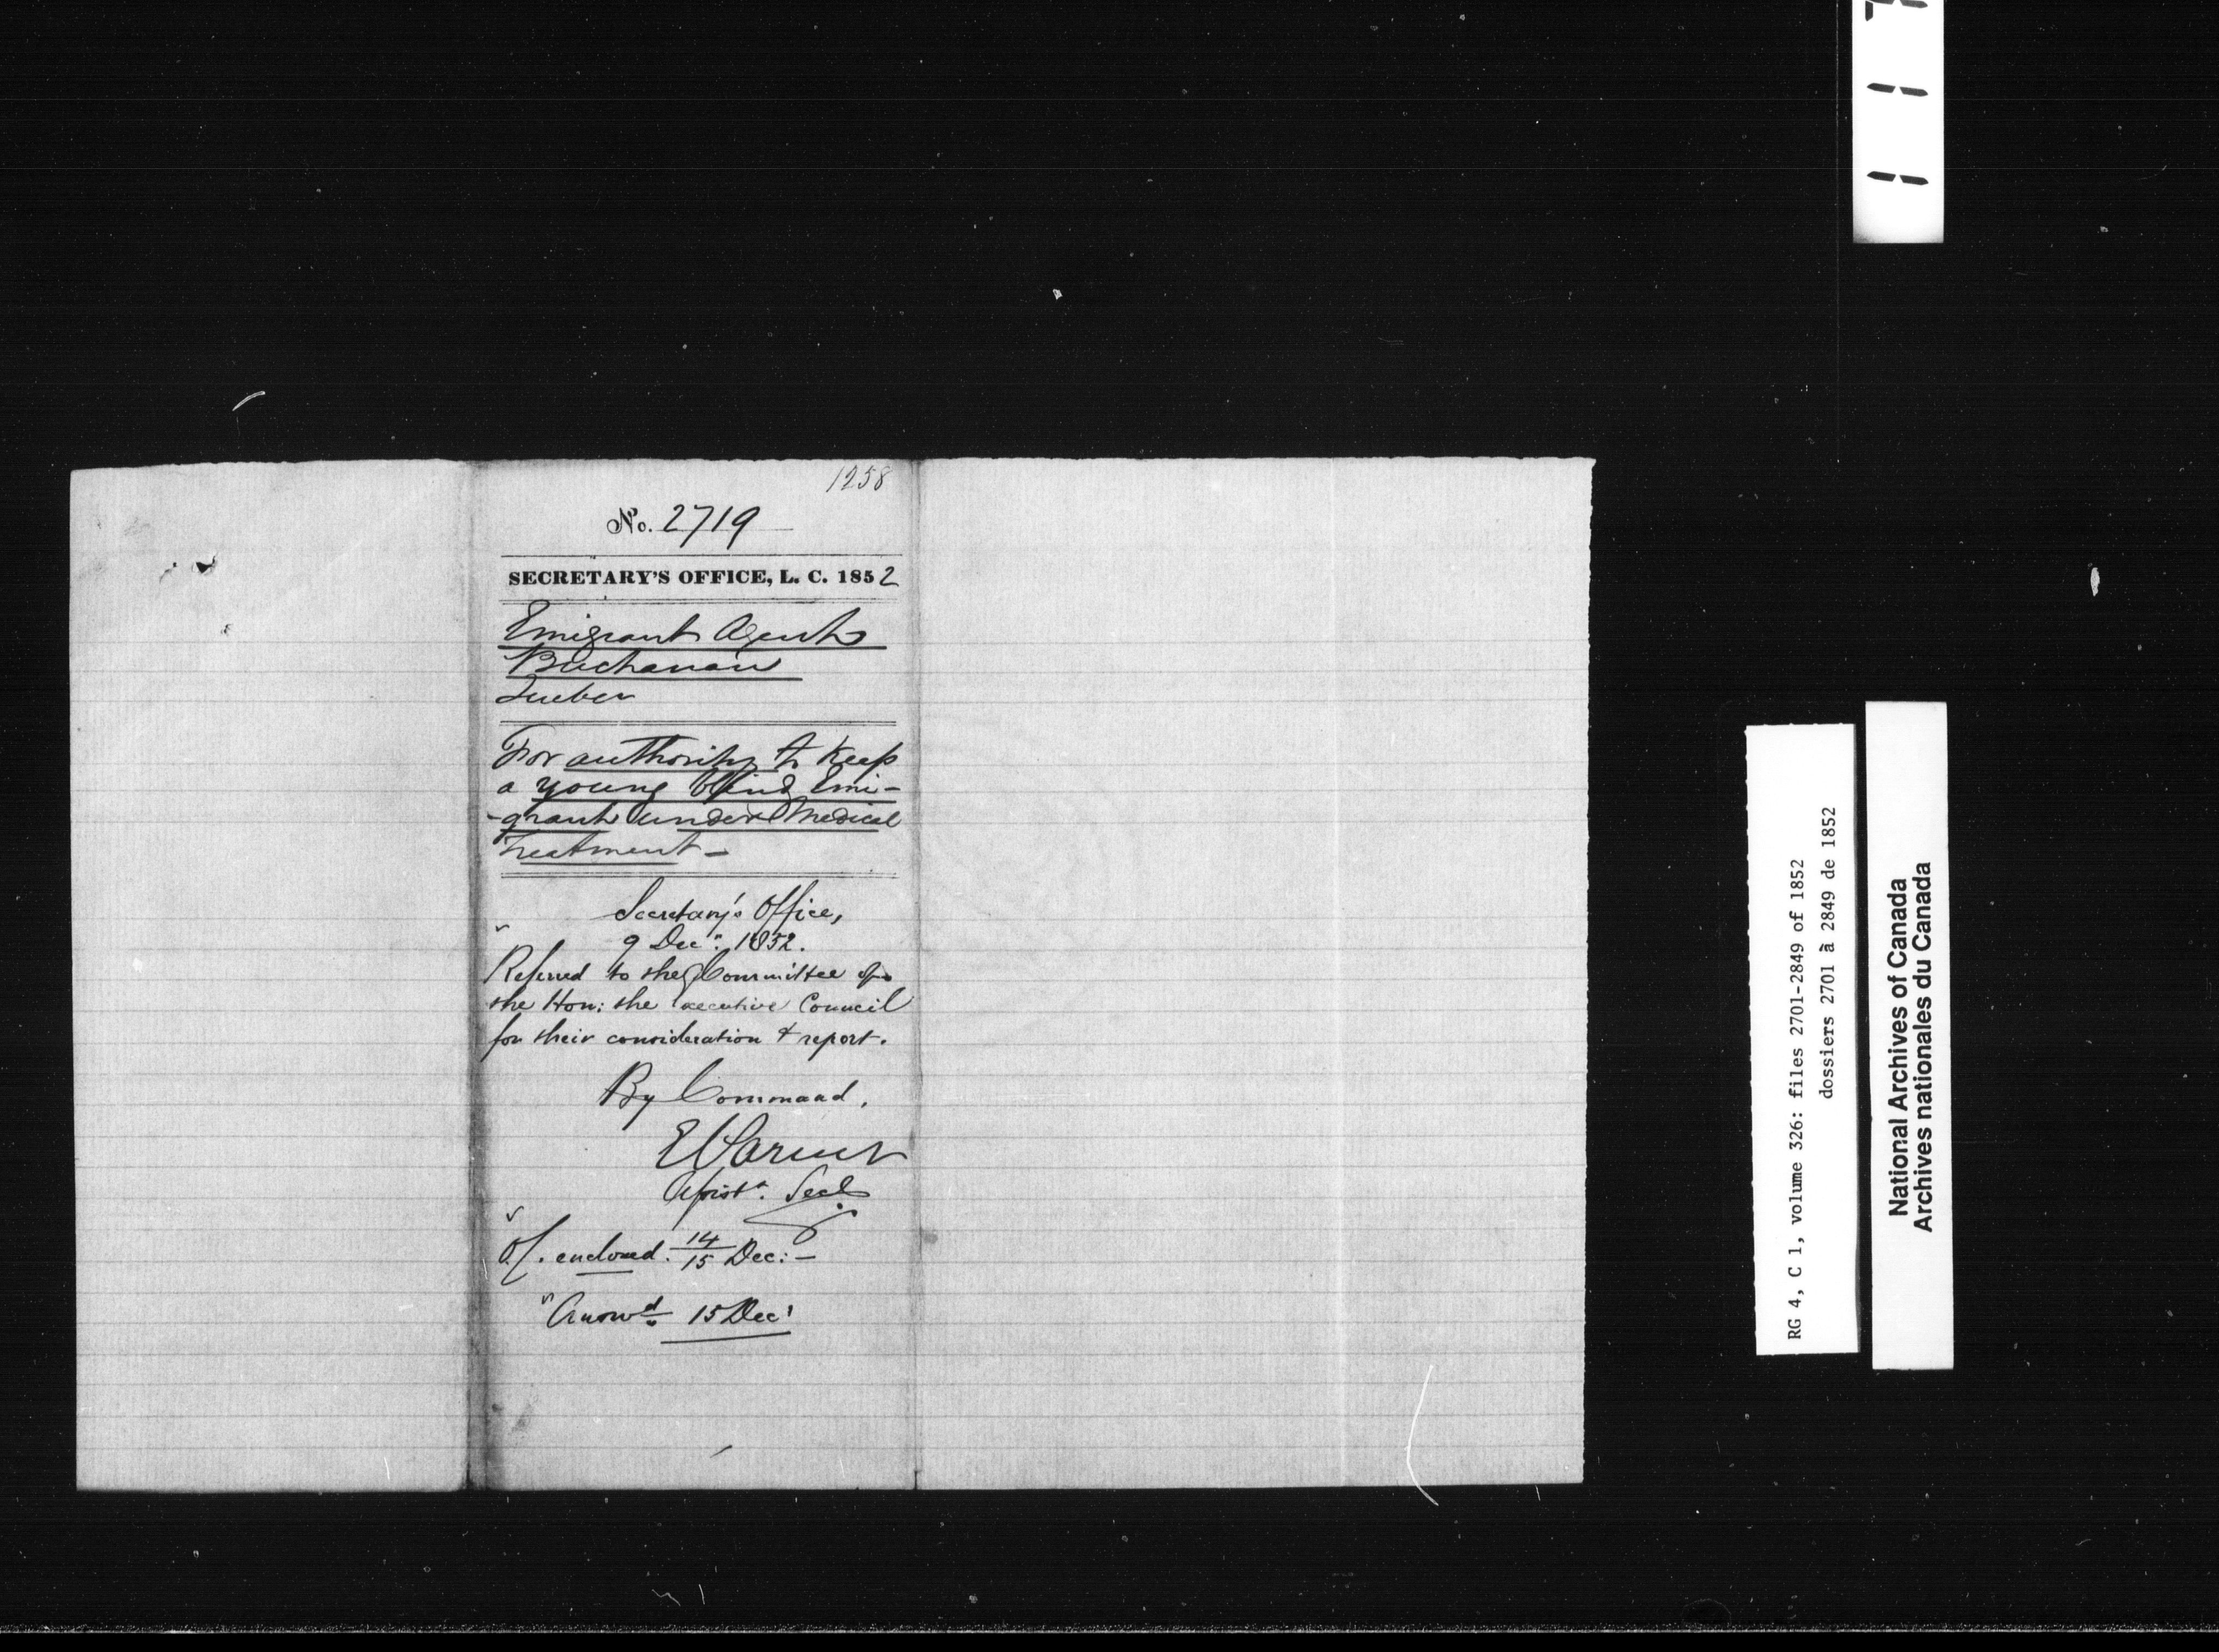 1258
No. 2719
SECRETARY'S OFFICE, L. C. 1852
Emigrant Agent
Buchanan
Quebec
For authority to Keep
a young blind Emi-
-grant under Medical
Treatment -
Secretary's Office,
9 Decr. 1852.
Referred to the Committee of
the Hon: the Executive Council
for their consideration & report.
By Command.
E Parent
Assistt. Secy
enclosed. 14/15 Dec: -
Answd 15 Decr
RG 4, C 1, volume 326: files 2701-2849 of 1852
dossiers 2701 à 2849 de 1852
National Archives of Canada
Archives nationales du Canada